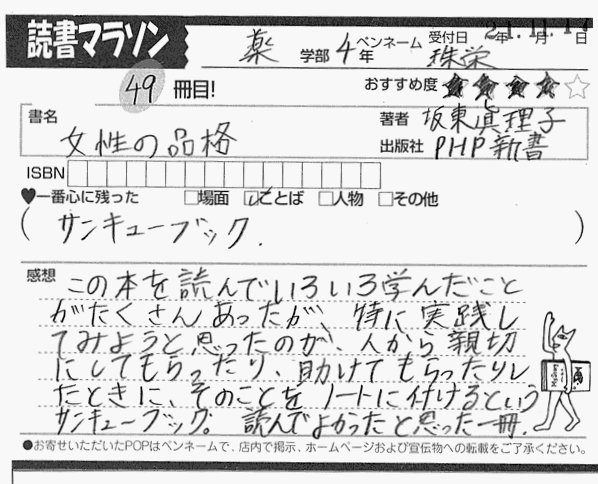 読書マラソン
薬 学部 4年 ペンネーム 珠栄 受付日 21年11月17日
49 冊目! おすすめ度 ★★★★☆
書名 女性の品格
著者 坂東眞理子
出版社 PHP新書
ISBN
♥一番心に残った □場面 ☑ことば □人物 □その他
(サンキューブック.)
感想 この本を読んでいろいろ学んだこと
がたくさんあったが、特に実践し
てみようと思ったのが、人から親切
にしてもらったり、助けてもらったりし
たときに、そのことをノートに付けるという
サンキューブック。読んでよかったと思った一冊.
●お寄せいただいたPOPはペンネームで、店内で掲示、ホームページおよび宣伝物への転載をご了承ください。